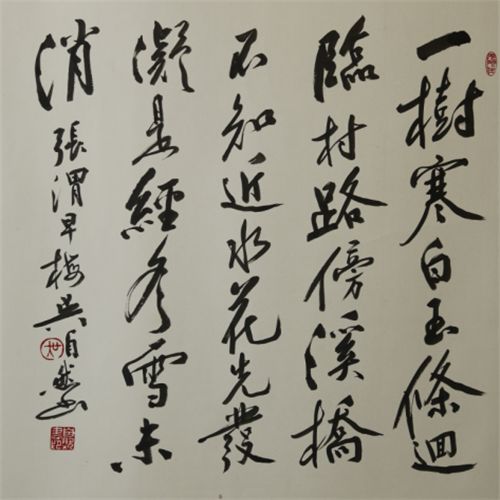 一樹寒白玉條迴
臨村路傍溪橋
不知近水花先發
凝是經冬雪未
消
張渭早梅吳